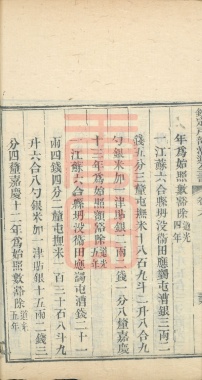 年爲始照數豁除道光四年
一江蘇六合縣坍沒信田應調屯漕銀三兩一
錢五分三釐屯撫米一八石九斗二升八合九
勺銀米加一津貼銀二兩二錢一分八釐嘉慶
十三年爲始照額豁除道光五年
一江蘇六合縣坍沒信田應調屯漕銀二十
兩四錢四分二釐屯撫米一百三十石八斗九
升六合八勺銀米加一津貼銀十五兩二錢三
分四釐嘉慶十二年爲始照數豁除道光五年